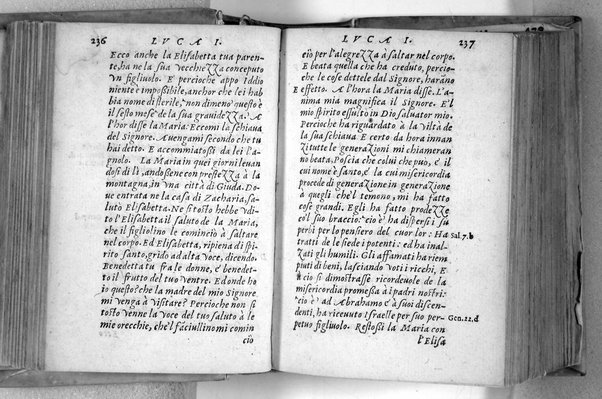 236 LVCA I.
Ecco anche la Elisabetta tua paren-
te, ha ne la sua vecchiezza conceputo
vn figliuolo. E percioche appo Iddio
niente è impossibile, anchor che lei hab
bia nome di sterile, non dimeno questo è
il sesto mese de la sua grauidezza. A
l'hor disse la Maria: Eccomi la schiaua
del Signore. Auengami secondo che tu
hai detto. E accommiatosi da lei l'a-
gnolo. La Maria in quei giorni leuan
dosi di lì, andossene con prestezza à la
montagna, in vna città di Giuda. Do-
ue entrata ne la casa di Zacharia, salu-
tò Elisabetta. Ne sì tosto hebbe vdi-
to l'Elisabetta il saluto de la Maria,
che il figliolino le cominciò à saltare
nel corpo. Ed Elisabetta, ripiena di spi-
rito santo, gridò ad alta voce, dicendo:
Benedetta tu fra le donne, e benedet-
to il frutto del tuo ventre. E donde ho
io questo? che la madre del mio Signore
mi venga à visitare? Percioche non sì
tosto venne la voce del tuo saluto à le
mie orecchie, che'l fãciullino mi comin
cio
LVCA I. 237
ciò per l'alegrezza à saltar nel corpo.
E beata quella che ha creduto, percio-
che le cose dettele dal Signore, harãno
effetto. A l'hora la Maria disse. L'a-
nima mia magnifica il Signore. E'l
mio spirito essulta in Dio saluator mio.
Percioche ha riguardato à la viltà de
la sua schiaua. E certo da hora innan
zi tutte le generazioni mi chiameran
no beata. Poscia che colui che può, e il
cui nome è santo, e la cui misericordia
procede di generazione in generazione
à quegli che'l temono, mi ha fatto
cose grandi. Egli ha fatto prodezze
co'l suo braccio: cio è ha dispersi i su
perbi per lo pensiero del cuor lor: Ha Sal.7.b
tratti de le siede i potenti: ed ha inal-
zati gli humili. Gli affamati ha riem
piuti di beni, lasciando voti i ricchi. E
cio si dimostrasse ricordeuole de la
misericordia promessa à i padri nostri:
cio è ad Abrahamo e à suoi discen-
denti, ha riceuuto Israelle per suo per- Gen.22.d
petuo figliuolo. Restossi la Maria con
l'Elisa